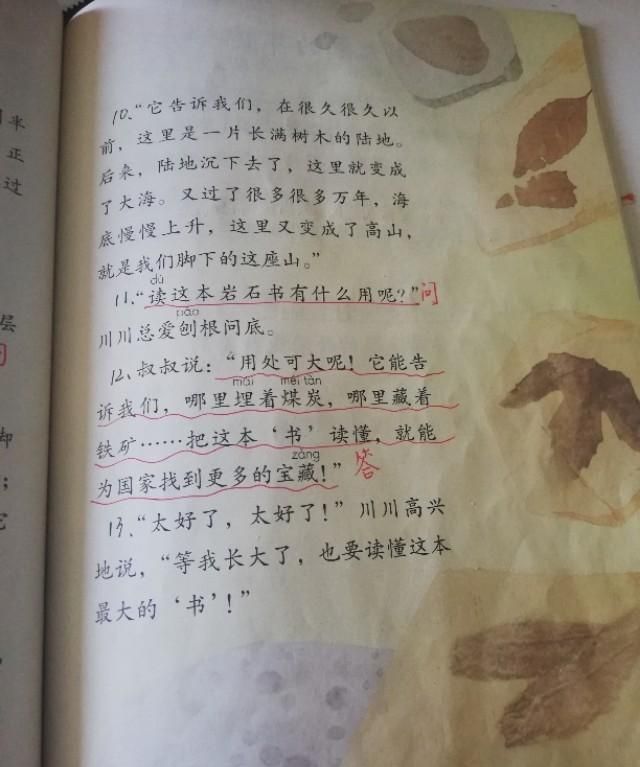 正
过
层
10、“它告诉我们，在很久很久以
前，这里是一片长满树木的陆地。
后来，陆地沉下去了，这里就变成
了大海。又过了很多很多万年，海
底慢慢上升，这里又变成了高山，
就是我们脚下的这座山。”
dú
11、“读这本岩石书有什么用呢？”问
páo
川川总爱刨根问底。
12、叔叔说：“用处可大呢！它能告
mái méi tàn
诉我们，哪里埋着煤炭，哪里藏着
铁矿……把这本‘书’读懂，就能
zàng
为国家找到更多的宝藏！”答
13、“太好了，太好了！”川川高兴
地说，“等我长大了，也要读懂这本
最大的‘书’！”